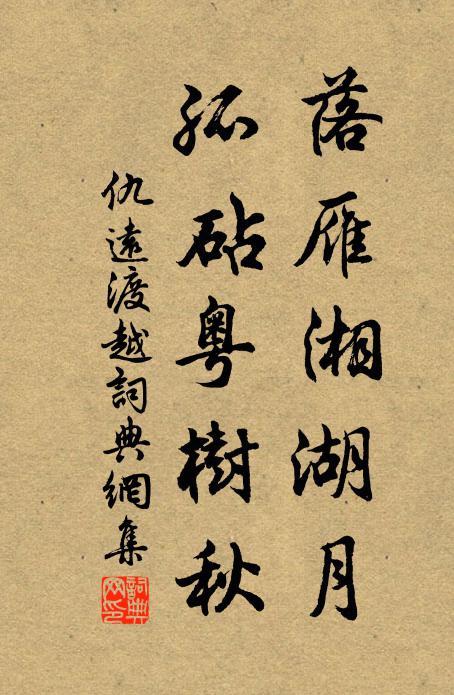 落雁湘湖月
孤砧粤樹秋
仇遠渡越詞典網集
詞典網印